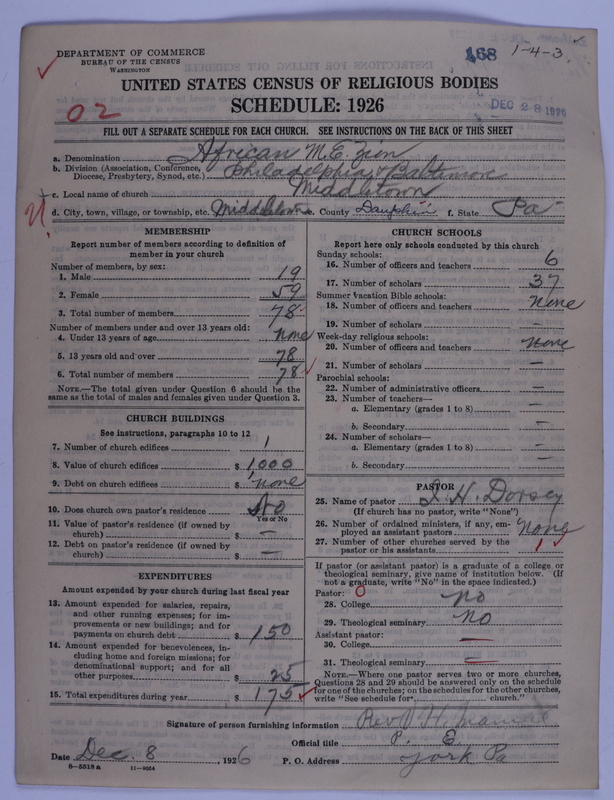 DEPARTMENT OF COMMERCE
BUREAU OF THE CENSUS
WASHINGTON
168
1-4-3
UNITED STATES CENSUS OF RELIGIOUS BODIES
SCHEDULE: 1926
02
DEC 28 1926
FILL OUT A SEPARATE SCHEDULE FOR EACH CHURCH. SEE INSTRUCTIONS ON THE BACK OF THIS SHEET
a. Denomination African M.E. Zion
b. Division (Association, Conference, Diocese, Presbytery, Synod, etc.) Philadelphia & Baltimore
c. Local name of church Middletown
d. City, town, village, or township, etc. Middletown e. County Dauphin f. State Pa
MEMBERSHIP
Report number of members according to definition of
member in your church
Number of members, by sex:
1. Male 19
2. Female 59
3. Total number of members 78
Number of members under and over 13 years old:
4. Under 13 years of age none
5. 13 years old and over 78
6. Total number of members 78
NOTE.—The total given under Question 6 should be
same as the total of males and females given under Question 3.
CHURCH BUILDINGS
See instructions, paragraphs 10 to 12
7. Number of church edifices 1
8. Value of church edifices $ 1,000
9. Debt on church edifices $ none
10. Does church own pastor's residence No
Yes or No
11. Value of pastor's residence (if owned by
church) $ —
12. Debt on pastor's residence (if owned by
church) $ —
EXPENDITURES
Amount expended by your church during last fiscal year
13. Amount expended for salaries, repairs,
and other running expenses; for im-
provements or new buildings; and for
payments on church debt $ 150
14. Amount expended for benevolences, in-
cluding home and foreign missions; for
denominational support; and for all
other purposes $ 25
15. Total expenditures during year $ 175
CHURCH SCHOOLS
Report here only schools conducted by this church
Sunday schools:
16. Number of officers and teachers 6
17. Number of scholars 37
Summer Vacation Bible schools:
18. Number of officers and teachers none
19. Number of scholars —
Week-day religious schools:
20. Number of officers and teachers none
21. Number of scholars —
Parochial schools:
22. Number of administrative officers —
23. Number of teachers—
a. Elementary (grades 1 to 8) —
b. Secondary —
24. Number of scholars—
a. Elementary (grades 1 to 8) —
b. Secondary —
PASTOR
25. Name of pastor J. H. Dorsey
(If church has no pastor, write "None")
26. Number of ordained ministers, if any, em-
ployed as assistant pastors none
27. Number of other churches served by the
pastor or his assistants 1
If pastor (or assistant pastor) is a graduate of a college or
theological seminary, give name of institution below. (If
not a graduate, write "No" in the space indicated.)
Pastor: 0
28. College no
29. Theological seminary no
Assistant pastor:
30. College —
31. Theological seminary —
NOTE.—Where one pastor serves two or more churches,
Questions 28 and 29 should be answered only on the schedule
for one of the churches; on the schedules for the other churches,
write "See schedule for church."
Signature of person furnishing information Rev
Official title P. E.
Date Dec. 8, 1926 P. O. Address York Pa
8—5518 a 11—9054